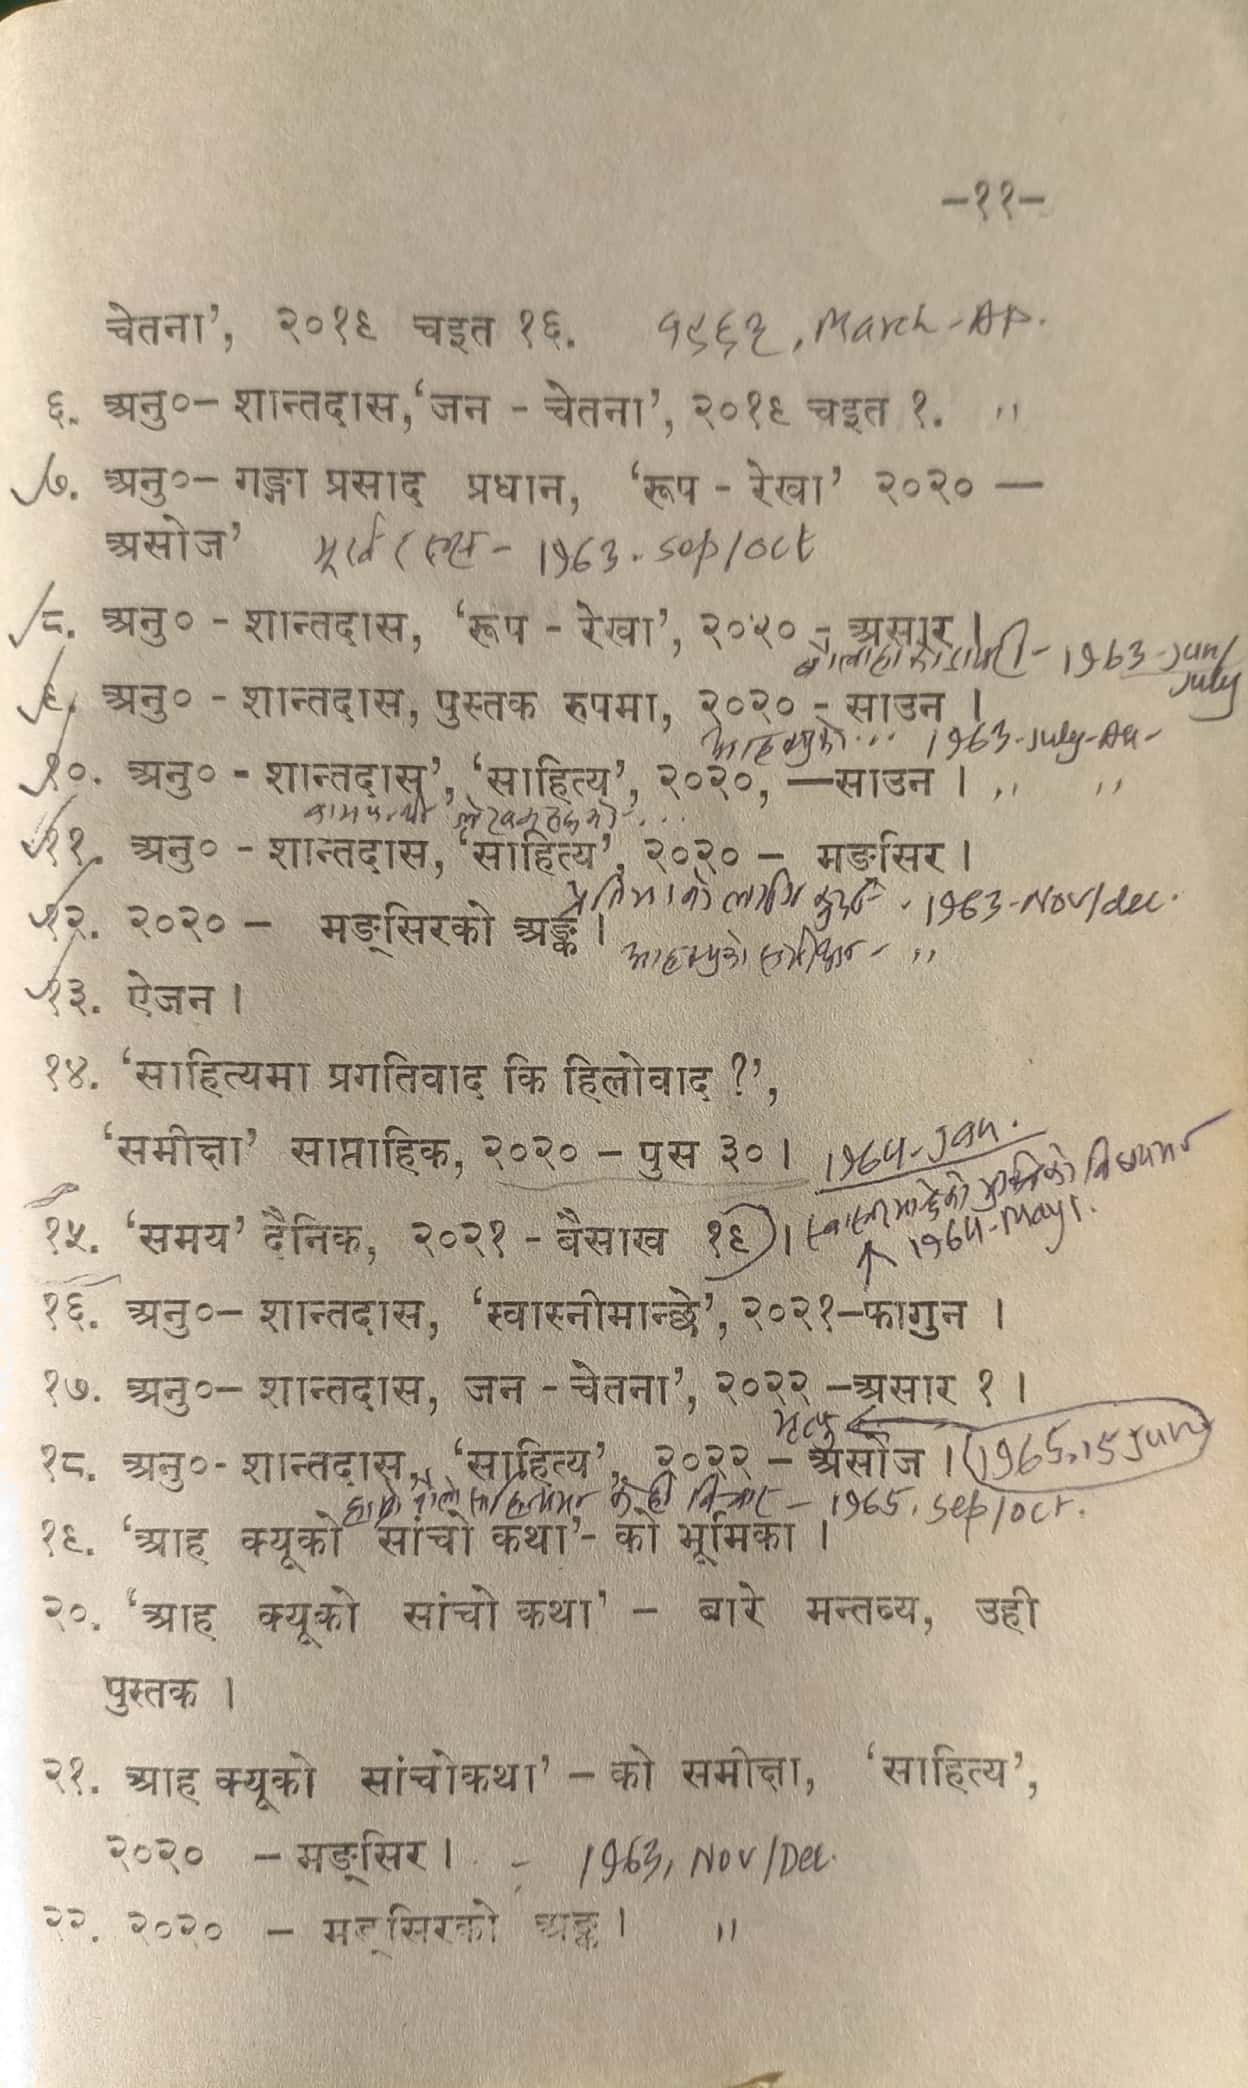 -११-
चेतना', २०१९ चइत १६. १९६३, March-AP.
६. अनु०- शान्तदास,'जन - चेतना', २०१९ चइत १. ,,
७. अनु०- गङ्गा प्रसाद प्रधान, 'रूप - रेखा' २०२० —
असोज' मूर्ख - 1963. sep/oct
८. अनु० - शान्तदास, 'रूप - रेखा', २०२० - असार।
बौलाहाको डायरी - 1963-Jun/
July
९. अनु० - शान्तदास, पुस्तक रुपमा, २०२० - साउन ।
आहक्यूको ... 1963-July-Au-
१०. अनु० - शान्तदास', 'साहित्य', २०२०, —साउन । ,, ,,
वामपन्थी लेखकहरूको ....
११. अनु० - शान्तदास, 'साहित्य', २०२० - मङ्सिर ।
प्रतिभाको लागि कुर्दा - 1963-Nov/dec.
१२. २०२० - मङ्सिरको अङ्क ।
आहक्यूको समीक्षा - ,,
१३. ऐजन ।
१४. 'साहित्यमा प्रगतिवाद कि हिलोवाद ?',
'समीक्षा' साप्ताहिक, २०२० - पुस ३० । 1964-Jan.
१५. 'समय' दैनिक, २०२१ - बैसाख १९ । स्वास्नीमान्छेको मुक्तिको विषयमा
↑ 1964-May1.
१६. अनु०- शान्तदास, 'स्वास्नीमान्छे', २०२१-फागुन ।
१७. अनु०- शान्तदास, जन - चेतना', २०२२ -असार १ ।
मृत्यु 1965, 15 Jun
१८. अनु०- शान्तदास, 'साहित्य', २०२२ - असोज ।
हाम्रो साहित्यमा केही विचार - 1965, sep/oct.
१९. 'आह क्यूको सांचो कथा'- को भूमिका ।
२०. 'आह क्यूको सांचो कथा' - बारे मन्तब्य, उही
पुस्तक ।
२१. आह क्यूको सांचोकथा' - को समीक्षा, 'साहित्य',
२०२० - मङ्सिर । - 1963, Nov/Dec.
२२. २०२० - मङ्सिरको अङ्क । ,,